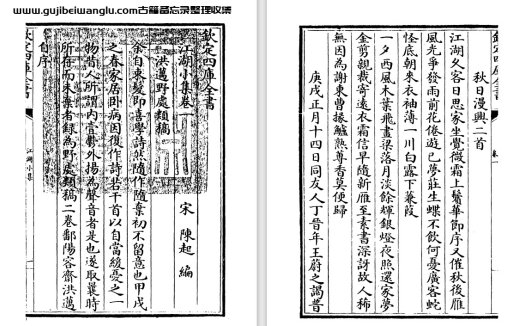 www.gujibeiwanglu.com古籍备忘录整理收集
欽定四庫全書
江湖小集卷一
宋 陳起 編
洪邁野處類稿
余自束髮即喜學詩然隨作隨棄初不留意也甲戌
之春家居臥病因復作詩若干首以自當緩憂之一
物昔人所謂內壹鬱外揚為聲音者是也遂取曩時
所存而未棄者錄為野處類稿二卷鄱陽容齋洪邁
自序
欽定四庫全書
江湖小集
秋日漫興二首
江湖久客日思家坐覺微霜上鬢華節序又催秋後雁
風光爭發雨前花倦遊已夢莊生蝶不飲何憂廣客蛇
怪底朝來衣袖薄一川白露下蒹葭
一夕西風木葉飛畫梁落月淡餘輝銀燈夜照還家夢
金剪親裁寄遠衣霜信早隨新雁至素書深訝故人稀
無因為謝東曹掾鱸熟蓴香莫便歸
庚戌正月十四日同友人丁晉年王蔚之謁普